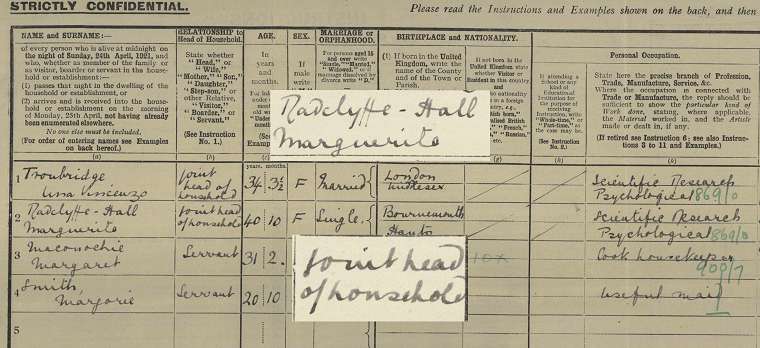 STRICTLY CONFIDENTIAL.
Please read the Instructions and Examples shown on the back, and then
NAME and SURNAME:—
of every person who is alive at midnight on
the night of Sunday, 24th April, 1921,
and who, whether as member of the family or
as visitor, boarder or servant in the house-
hold or establishment—
(1) passes that night in the dwelling of the
household or establishment, or
(2) arrives and is received into the house-
hold or establishment on the morning
of Monday, 25th April, not having already
been enumerated elsewhere.
No one else must be included.
(For order of entering names see Examples
on back hereof.)
(a)
RELATIONSHIP to
Head of Household.
State whether
"Head," or
"Wife,"
"Mother," "Son,"
"Daughter,"
"Step-son," or
other Relative,
"Visitor,"
"Boarder," or
"Servant."
(See Instruction
No. 1.)
(b)
AGE.
In
years
and
months.
SEX.
If
male
write
MARRIAGE or
ORPHANHOOD.
For persons aged 15
and over write
BIRTHPLACE and NATIONALITY.
(1) If born in the United
Kingdom, write the
name of the County
and of the Town or
Parish.
If not born in the
United Kingdom, state
whether Visitor or
Resident in this country
If attending a
School or any
kind of
Educational
Institution for
the purpose of
receiving
Instruction, write
"Whole-time," or
"Part-time," as
the case may be.
(See Instruction
No. 5.)
Personal Occupation.
State here the precise branch of Profession,
Trade, Manufacture, Service, &c.
Where the occupation is connected with
Trade or Manufacture, the reply should be
sufficient to show the particular kind of
Work done, stating, where applicable,
the Material worked in, and the Article
made or dealt in, if any.
(If retired see Instruction 6; see also Instruc-
tions 8 to 11 and Examples.)
(k)
Radclyffe-Hall
Marguerite
years. months.
1 Troubridge Una Vincenzo
Joint head of household
34 3½ F Married
London Middlesex
Scientific Research Psychological 869/0
2 Radclyffe-Hall Marguerite
Joint head of household
40 10 F Single
Bournemouth Hants
Scientific Research Psychological 869/0
3 Maconochie Margaret
Servant
31 2.
Cook housekeeper 909/7
4 Smith, Marjorie
Servant
20 10
useful maid
5
Joint head
of household